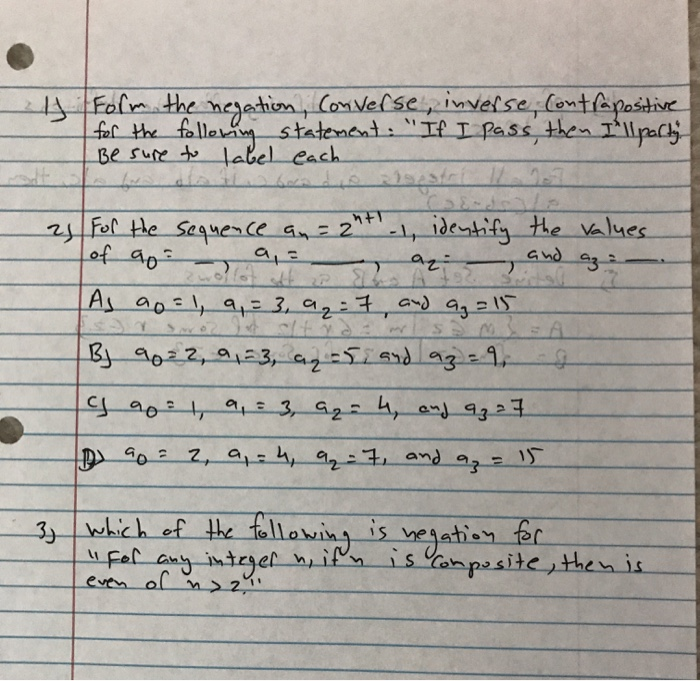 1) Form the negation, Converse, inverse, Contrapositive
for the following statement: "If I Pass, then I'll party.
Be sure to label each
2) For the sequence aₙ = 2ⁿ⁺¹ -1, identify the values
of a₀ = __, a₁ = __, a₂ = __, and a₃ = __.
A) a₀ = 1, a₁ = 3, a₂ = 7, and a₃ = 15
B) a₀ = 2, a₁ = 3, a₂ = 5, and a₃ = 9,
C) a₀ = 1, a₁ = 3, a₂ = 4, and a₃ = 7
D) a₀ = 2, a₁ = 4, a₂ = 7, and a₃ = 15
3) which of the following is negation for
"For any integer n, if n is Composite, then is
even or n > 2."